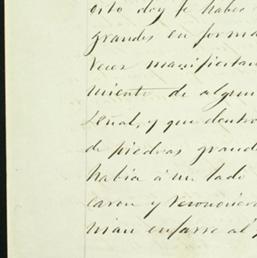 esto doy fe haber
grandes en forma
veces manifestan
miento de algun
señal, y que dentro
de piedras grand
habia á un lado
caron y reconocie
nian enfarre al